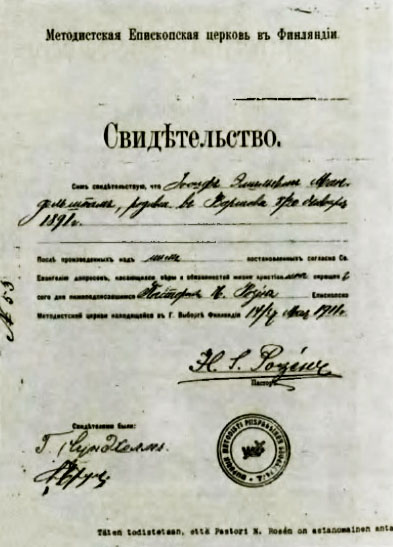 Методистская Епископская церковь въ Финляндіи
Свидѣтельство.
Симъ свидѣтельствую, что Іосифъ Эмильевъ Ман-
дельштамъ, родив. въ Варшавѣ
1891г.
Послѣ произведенныхъ надъ нимъ постановленныхъ согласно Св.
Евангелію допросовъ, касающихся вѣры и обязанностей жизни
сего дня нижеподписавшимся Пасторомъ Н. Розенъ Епископско
Методистской церкви находящейся въ Г. Выборгѣ Финляндіи 14/ Мая 1911г.
№ 53
Н. І. Розенъ
Пасторъ
Свидѣтелями были:
Täten todistetaan, että Pastori N. Rosén on astanomainen anta